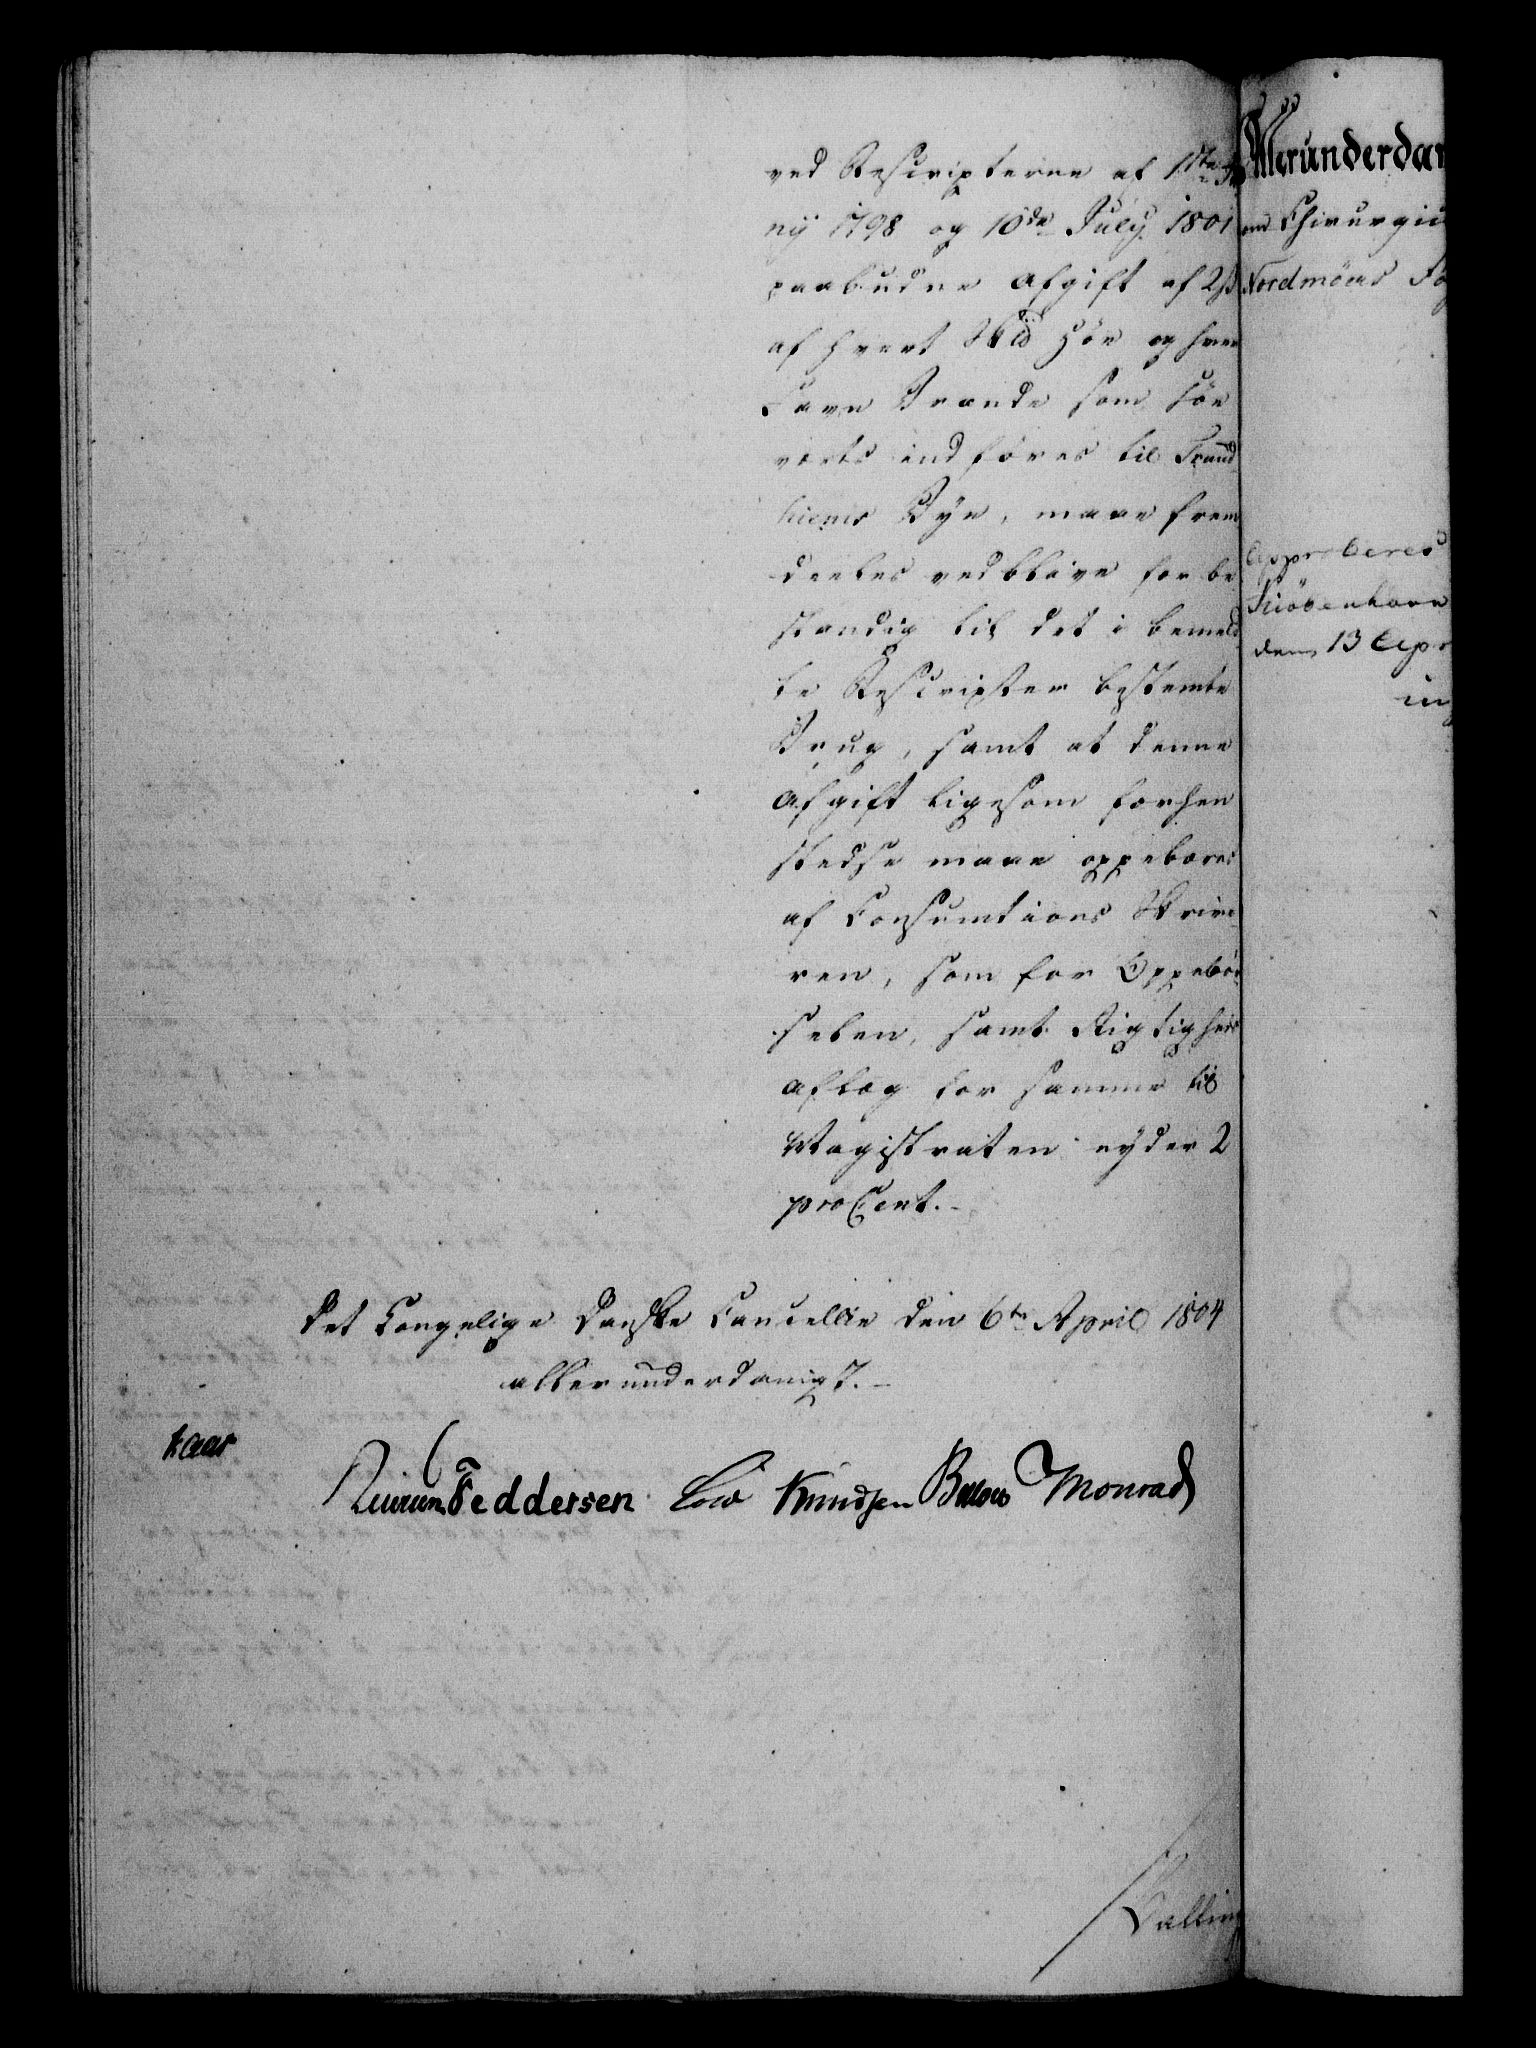 ved Rescripterne af 1ste Ju
nÿ 1798 og 10de July 1801
paabudne Afgift af 2 ß
af hvert Sk℔ Höe og hver
Favn Brænde som söe
værts indföres til Trond
hiems Bÿe, maae frem
deeles vedblive for be
standig til det i bemeld
te Rescripter bestemte
Brug, samt at denne
Afgift ligesom forhen
stedse maae oppebæres
af Consumtions Skrive
ren, som for Oppebör
selen, samt Rigtigheds
aflæg for samme til
Magistraten nÿder 2
proCent.
Det Kongelige Danske Cancellie den 6te April 1804
allerunderdanigst.
Kaas
Feddersen Knudsen Bülow Monrad
Allerunderdan
om Chirurgus
Nordmöers Fog
Approberes
Kiöbenhavn
den 13 Apr